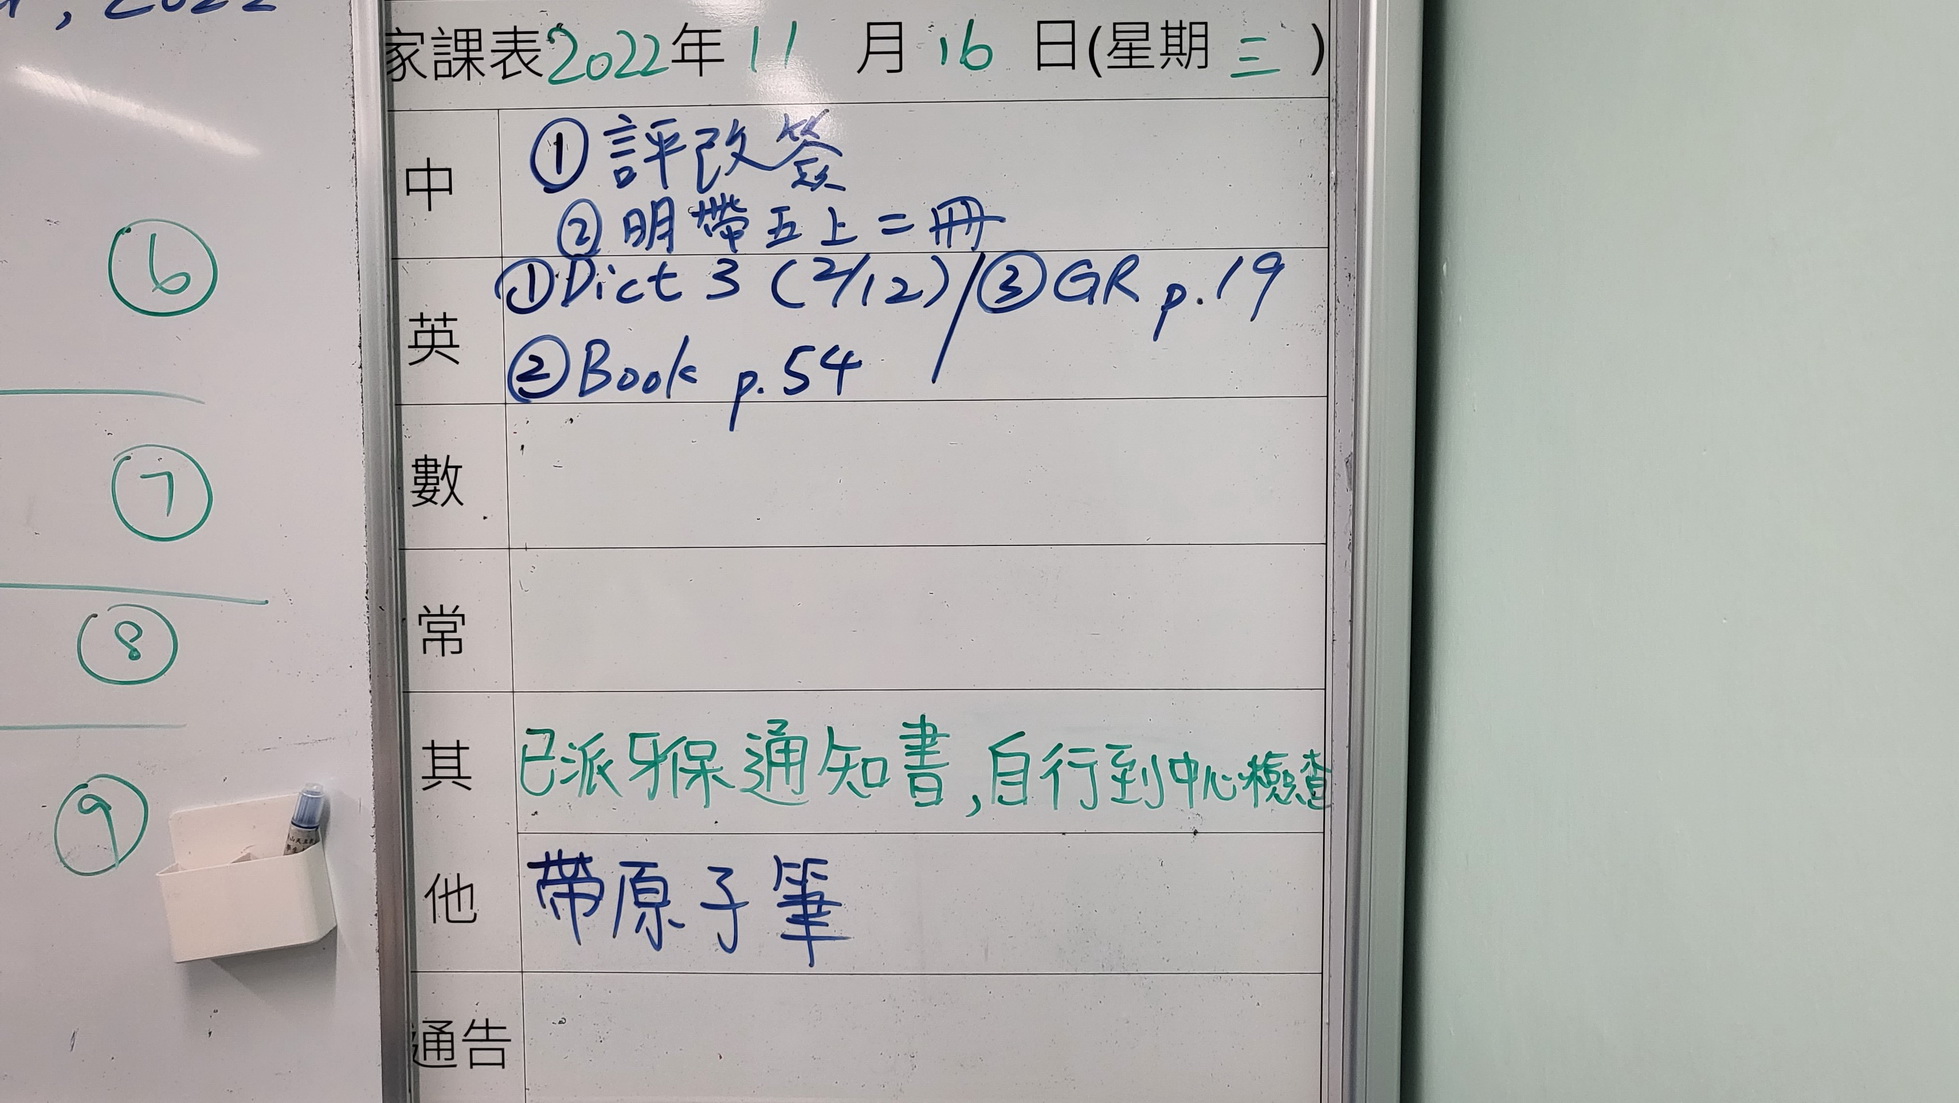 2022
家課表2022年 11 月 16 日(星期 三 )
中
① 評改簽
② 明帶五上二冊
英
① Dict 3 (2/12) / ③ GR p.19
② Book p.54
數
常
其他
已派牙保通知書,自行到中心檢查
帶原子筆
通告
⑥
⑦
⑧
⑨